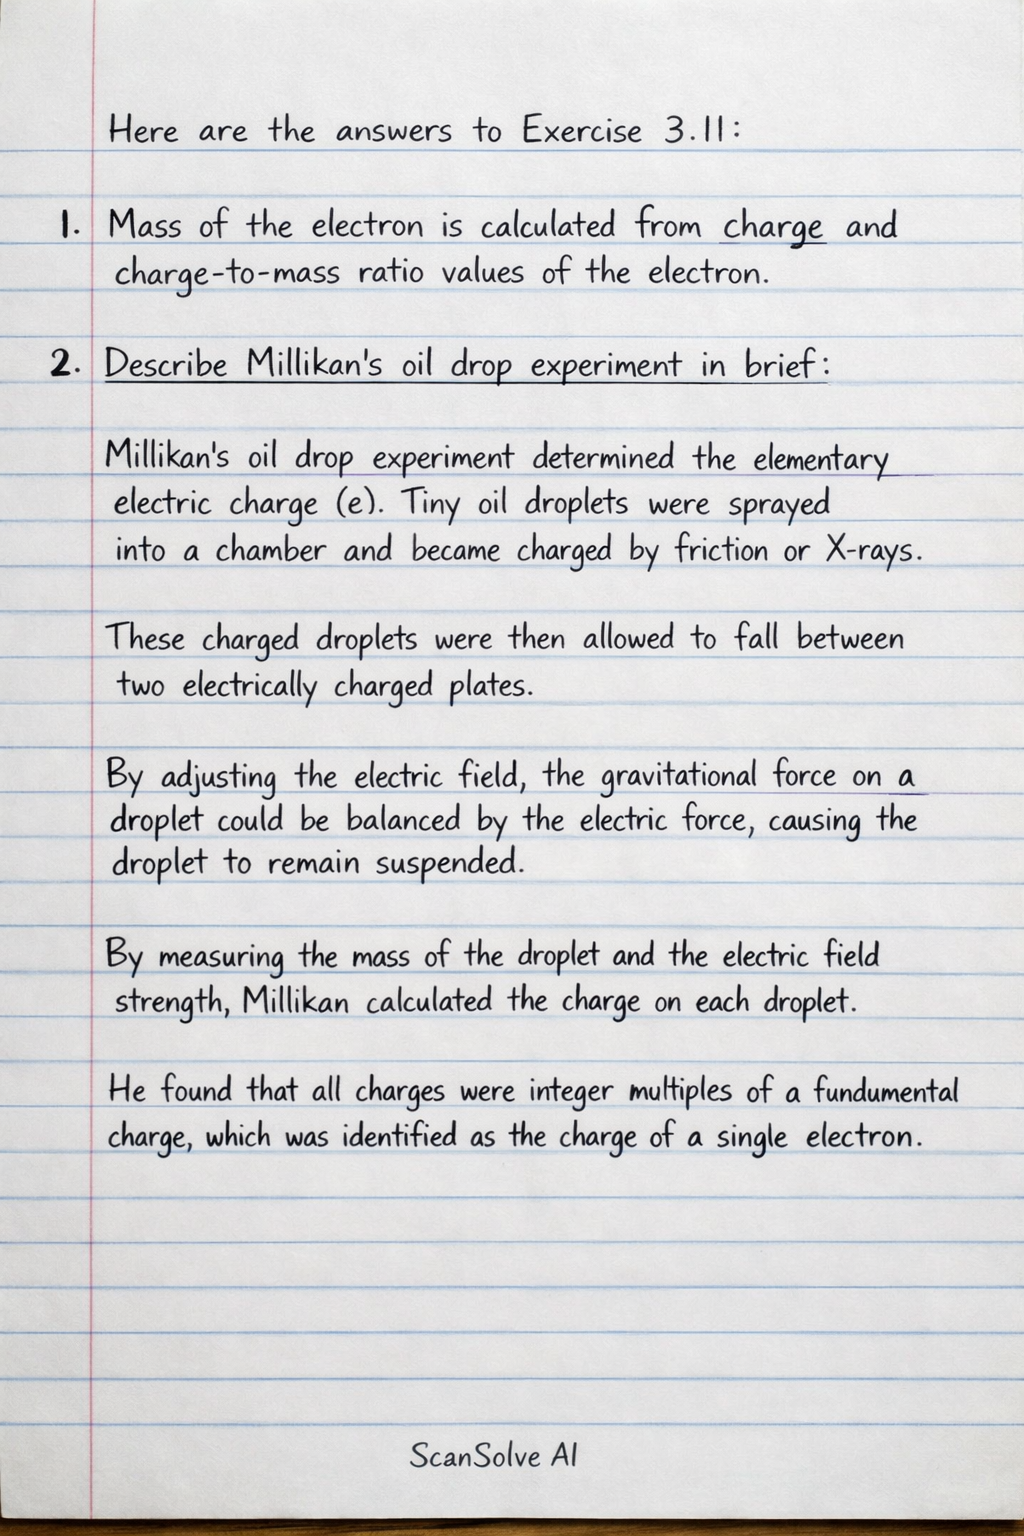 Here are the answers to Exercise 3.11:
1. Mass of the electron is calculated from charge and
charge-to-mass ratio values of the electron.
2. Describe Millikan's oil drop experiment in brief:
Millikan's oil drop experiment determined the elementary
electric charge (e). Tiny oil droplets were sprayed
into a chamber and became charged by friction or X-rays.
These charged droplets were then allowed to fall between
two electrically charged plates.
By adjusting the electric field, the gravitational force on a
droplet could be balanced by the electric force, causing the
droplet to remain suspended.
By measuring the mass of the droplet and the electric field
strength, Millikan calculated the charge on each droplet.
He found that all charges were integer multiples of a fundumental
charge, which was identified as the charge of a single electron.
ScanSolve AI